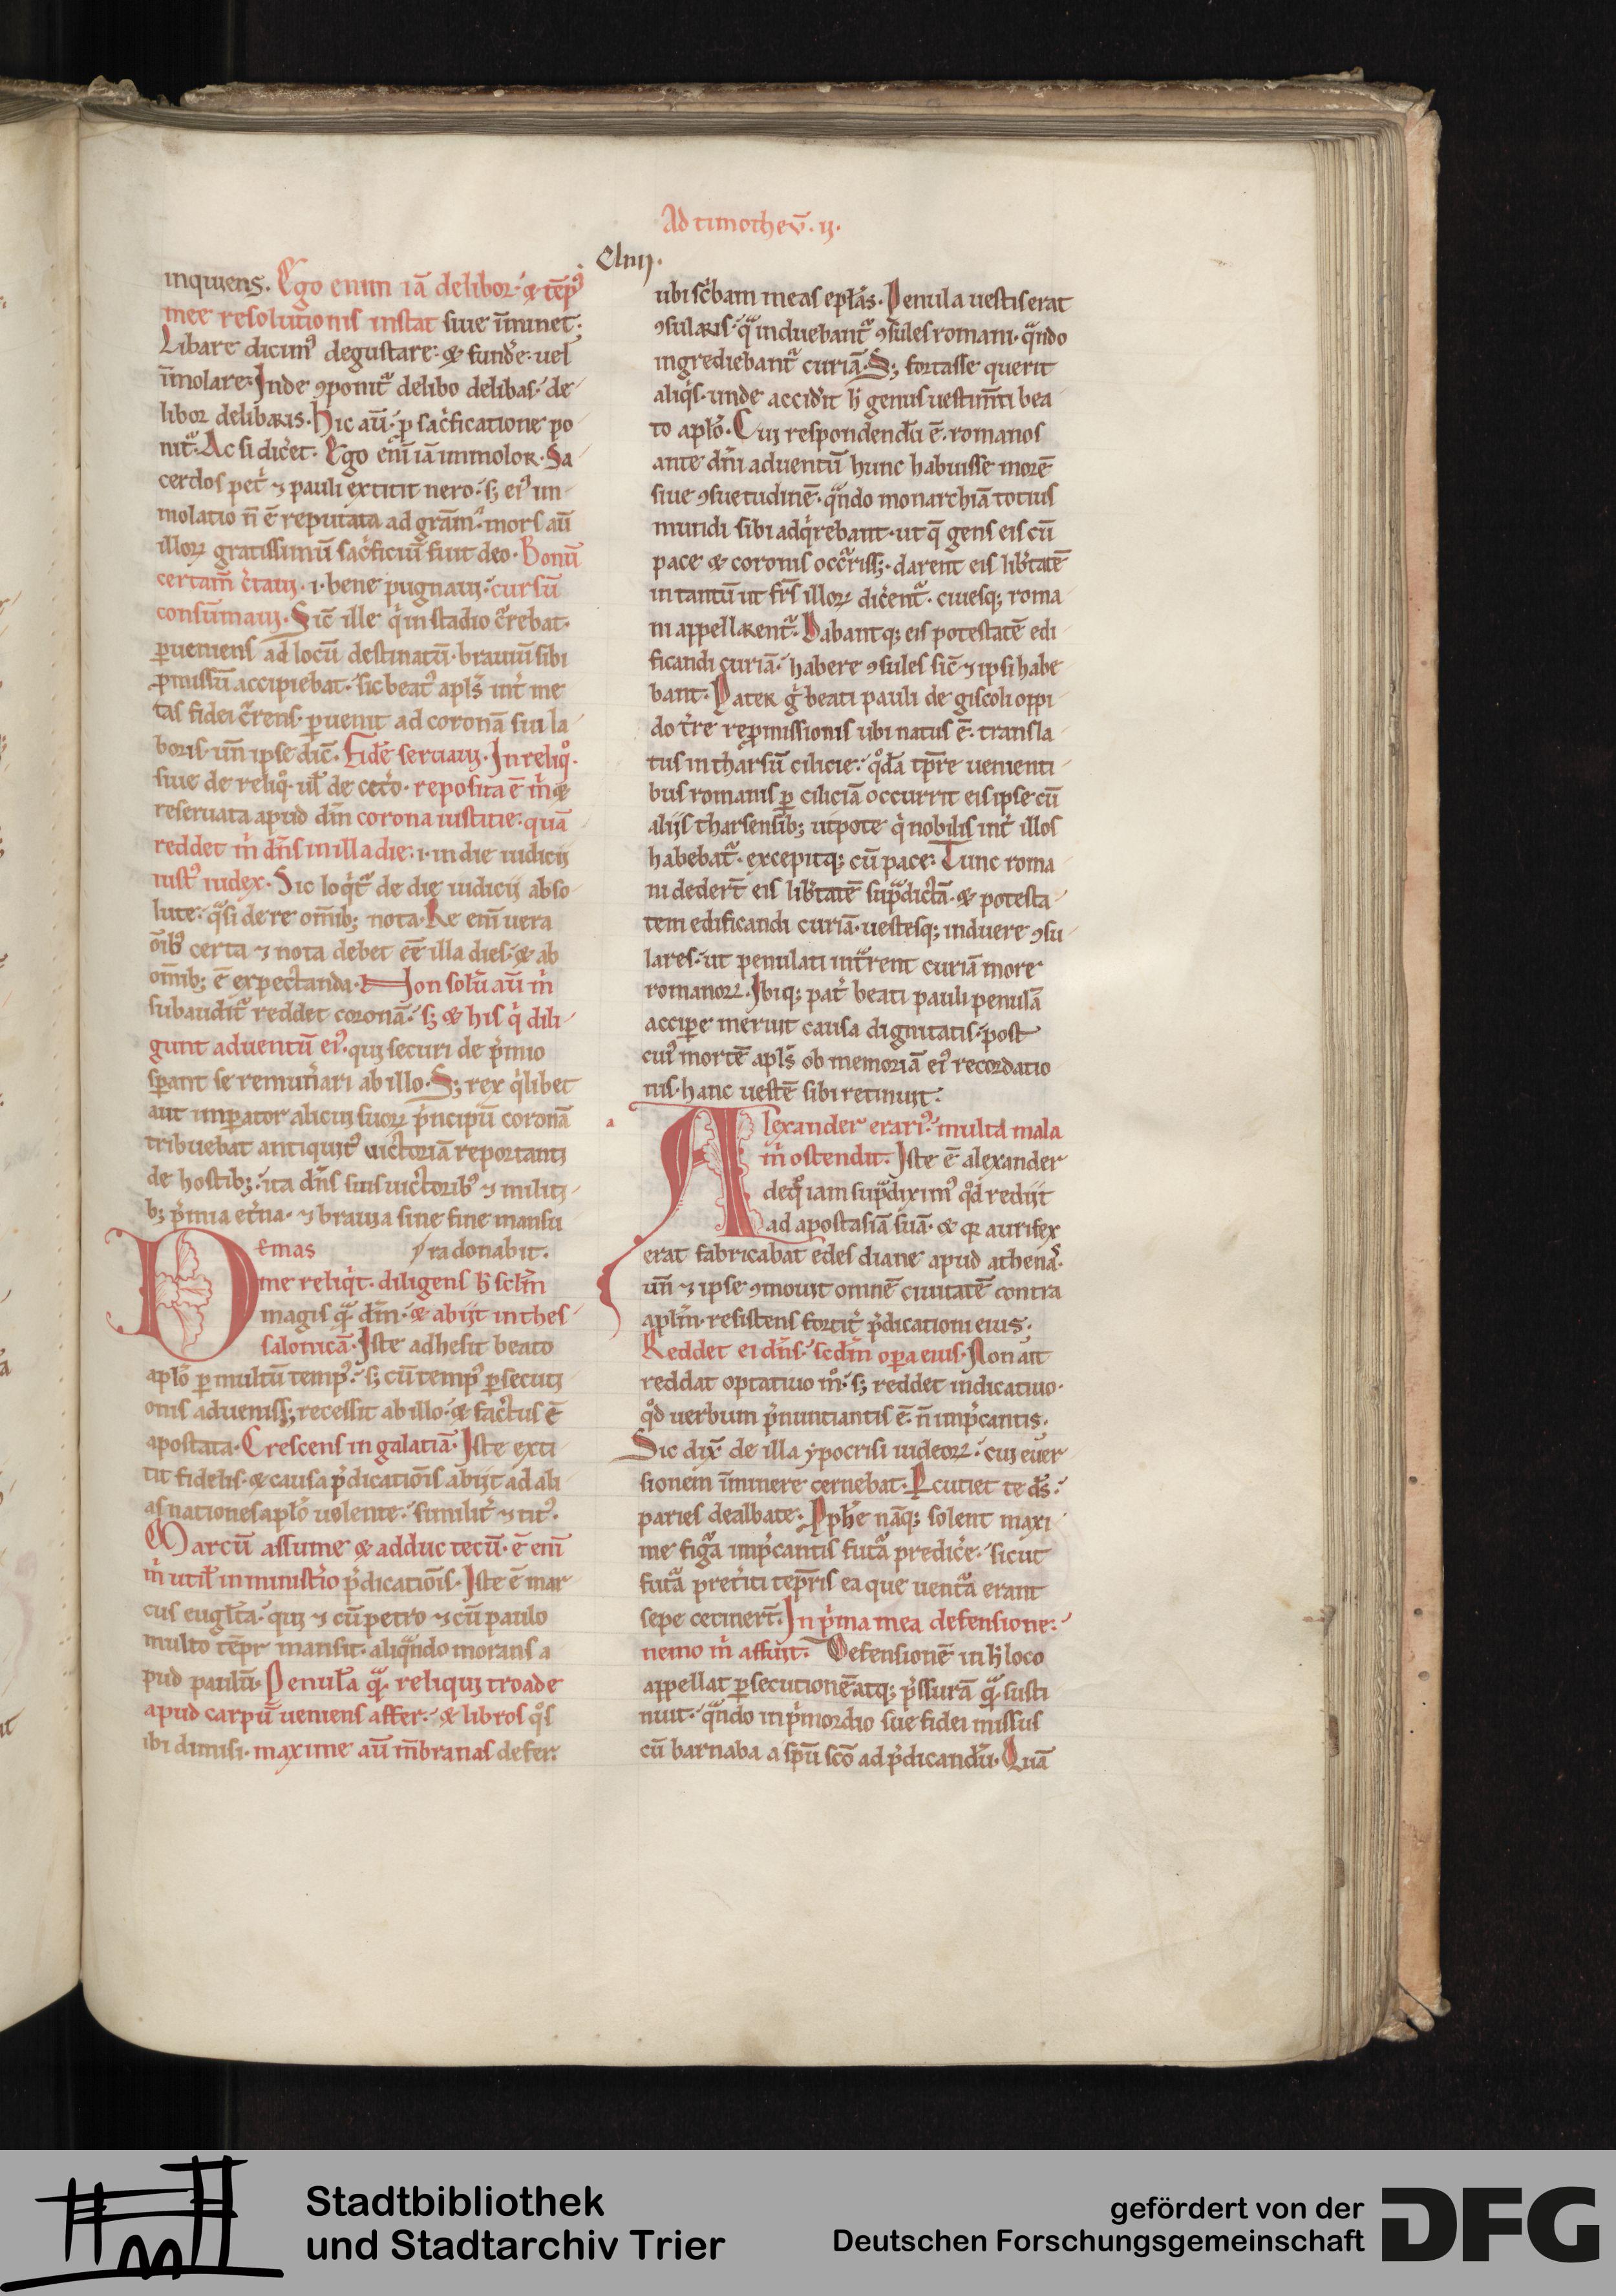 Ad timotheū. ıı.
Clıııı.
inquiens. Ego enim iā delibor: & tēpꝰ
mee resolutionis instat siue īminet.
Libare dicimꝰ degustare: & fundͥe: uel
īmolare: Inde ꝯponitᷓ delibo delibas. de
libor delibaris. Hic aū. ꝓ sacͥficatione po
nitᷓ. Ac si dicͥet. Ego enī iā immolor. Sa
cerdos petͥ ⁊ pauli extitit nero. sꝫ eiꝰ im
molatio n̄ ē reputata ad grām. mors aū
illoꝝ gratissimū sacͥficiū fuit deo. Bonū
certam̄ cͥtaui. i. bene pugnaui. cursū
consūmaui. Sic̄ ille qͥ in stadio cᷓrebat.
ꝑueniens ad locū destinatū. brauiū sibi
ꝓmissū accipiebat. sic beatꝰ apl̄s int̄ me
tas fidei cᷓrens. ꝑuenit ad coronā sui la
boris. un̄ ipse dic̄. Fidē seruaui. In reliqͦ.
siue de reliqͦ. ul̄ de cetͦo. reposita ē mͥ &
reseruata apud dm̄ corona iustitie: quā
reddet mͥ dn̄s in illa die. i. in die iudicii
iustꝰ iudex. Sic loqͥtᷓ de die iudicii abso
lute. qᷓsi de re om̄ibꝫ nota. Re em̄ uera
ōibꝰ certa ⁊ nota debet eē illa dies. & ab
om̄ibꝫ ē expectanda. Non solū aū mͥ
subauditᷓ reddet coronā. sꝫ & his qͥ dili
gunt aduentū eiꝰ. qui securi de pͥmio
sꝑant se remunͥari ab illo. Sꝫ rex qͥlibet
aut imꝑator alicui suoꝝ pͥncipū coronā
tribuebat antiquitꝰ uictoriā reportanti
de hostibꝫ. ita dn̄s suis uictoribꝰ ⁊ militi
bꝫ pͥmia etͥna. ⁊ brauia sine fine mansu
ra donabit.
Demas
me reliqͥt. diligens h̄ sclm̄
magis qᷓ. dm̄. & abiit in thes
salonicā. Iste adhesit beato
apl̄o ꝑ multū tempꝰ. sꝫ cū tempꝰ ꝑsecuti
onis aduenissꝫ recessit ab illo. & factus ē
apostata. Crescens in galatiā. Iste exti
tit fidelis. & causa pͥdicatiōis abiit ad ali
as nationes apl̄o uolente. similitͥ ⁊ titꝰ.
Marcū assume & adduc tecū. ē enī
mͥ util̄ in ministͥio pͥdicatiōis. Iste ē mar
cus eugl̄ta. qui ⁊ cū petro ⁊ cū paulo
multo tēpr̄ mansit. aliqᷓndo morans a
pud paulū. Penulā qᷓ. reliqui troade
apud carpū ueniens affer. & libros qͦs
ibi dimisi. maxime aū m̄branas defer.
ubi sc̄bam meas epl̄as. Penula uestis erat
ꝯsularis. qᷓ induebantᷓ ꝯsules romani. qᷓndo
ingrediebantᷓ curiā. Sꝫ fortasse querit
aliqͥs. unde accidͥit h̄ genus uestim̄ti bea
to apl̄o. Cui respondendū ē. romanos
ante dn̄i aduentū hunc habuisse morē
siue ꝯsuetudinē. qᷓndo monarchiā totius
mundi sibi adqͥrebant. ut q̄ gens eis cū
pace & coronis occᷓrissꝫ. darent eis lib̄tatē
in tantū ut fr̄s illoꝝ dicͥentᷓ. ciuesqꝫ roma
ni appellarentᷓ. Dabantqꝫ eis potestatē edi
ficandi curiā. habere ꝯsules sic̄ ⁊ ipsi habe
bant. Pater gͥ beati pauli de giscoli oppi
do tr̄e reꝓmissionis ubi natus ē. transla
tus in tharsū cilicie. qͦdā tp̄re uenienti
bus romanis ꝑ ciliciā occurrit eis ipse cū
aliis tharsensibꝫ utpote qͥ nobilis int̄ illos
habebatᷓ. excepitqꝫ cū pace. Tunc roma
ni dedert̄ eis lib̄tatē supᷓdictā. & potesta
tem edificandi curiā. uestesqꝫ induere ꝯsu
lares. ut penulati intᷓrent curiā more
romanoꝝ. Ibiqꝫ patͥ beati pauli penulā
accipe meruit causa dignitatis. post
cuiꝰ mortē apl̄s ob memoriā eiꝰ recordatio
nis. hanc uestē sibi retinuit.
a
Alexander erariꝰ. multa mala
mͥ ostendit. Iste ē alexander
de qͦ iam supᷓdiximꝰ qͦd rediit
ad apostasiā suā. & qꝛ aurifex
erat fabricabat edes diane apud athenas.
un̄ ⁊ ipse ꝯmouit omnē ciuitatē contra
apl̄m. resistens fortitͥ pͥdicationi eius.
Reddet ei dn̄s. scdm̄ oꝑa eius. Non ait
reddat optatiuo mͦ. sꝫ reddet indicatiuo.
qͦd uerbum pͥnuntiantis ē. n̄ impͥcantis.
Sic dix̄ de illa ypocrisi iudeoꝝ. cui euer
sionem īminere cernebat. Percutiet te ds̄.
paries dealbate. Pph̄e nāqꝫ solent maxi
me figᷓa impͥcantis futᷓa predicͥe. sicut
futᷓa pretͥiti tēpris ea que uentᷓa erant
sepe cecinert̄. In pͥma mea defensione.
nemo mͥ affuit. Defensionē in h̄ loco
appellat ꝑsecutionē atqꝫ pͥssurā qᷓ. susti
nuit. qᷓndo in pͥmordio sue fidei missus
cū barnaba a sp̄u sc̄o ad pͥdicandū. Quā
Stadtbibliothek
und Stadtarchiv Trier
gefördert von der
Deutschen Forschungsgemeinschaft
DFG